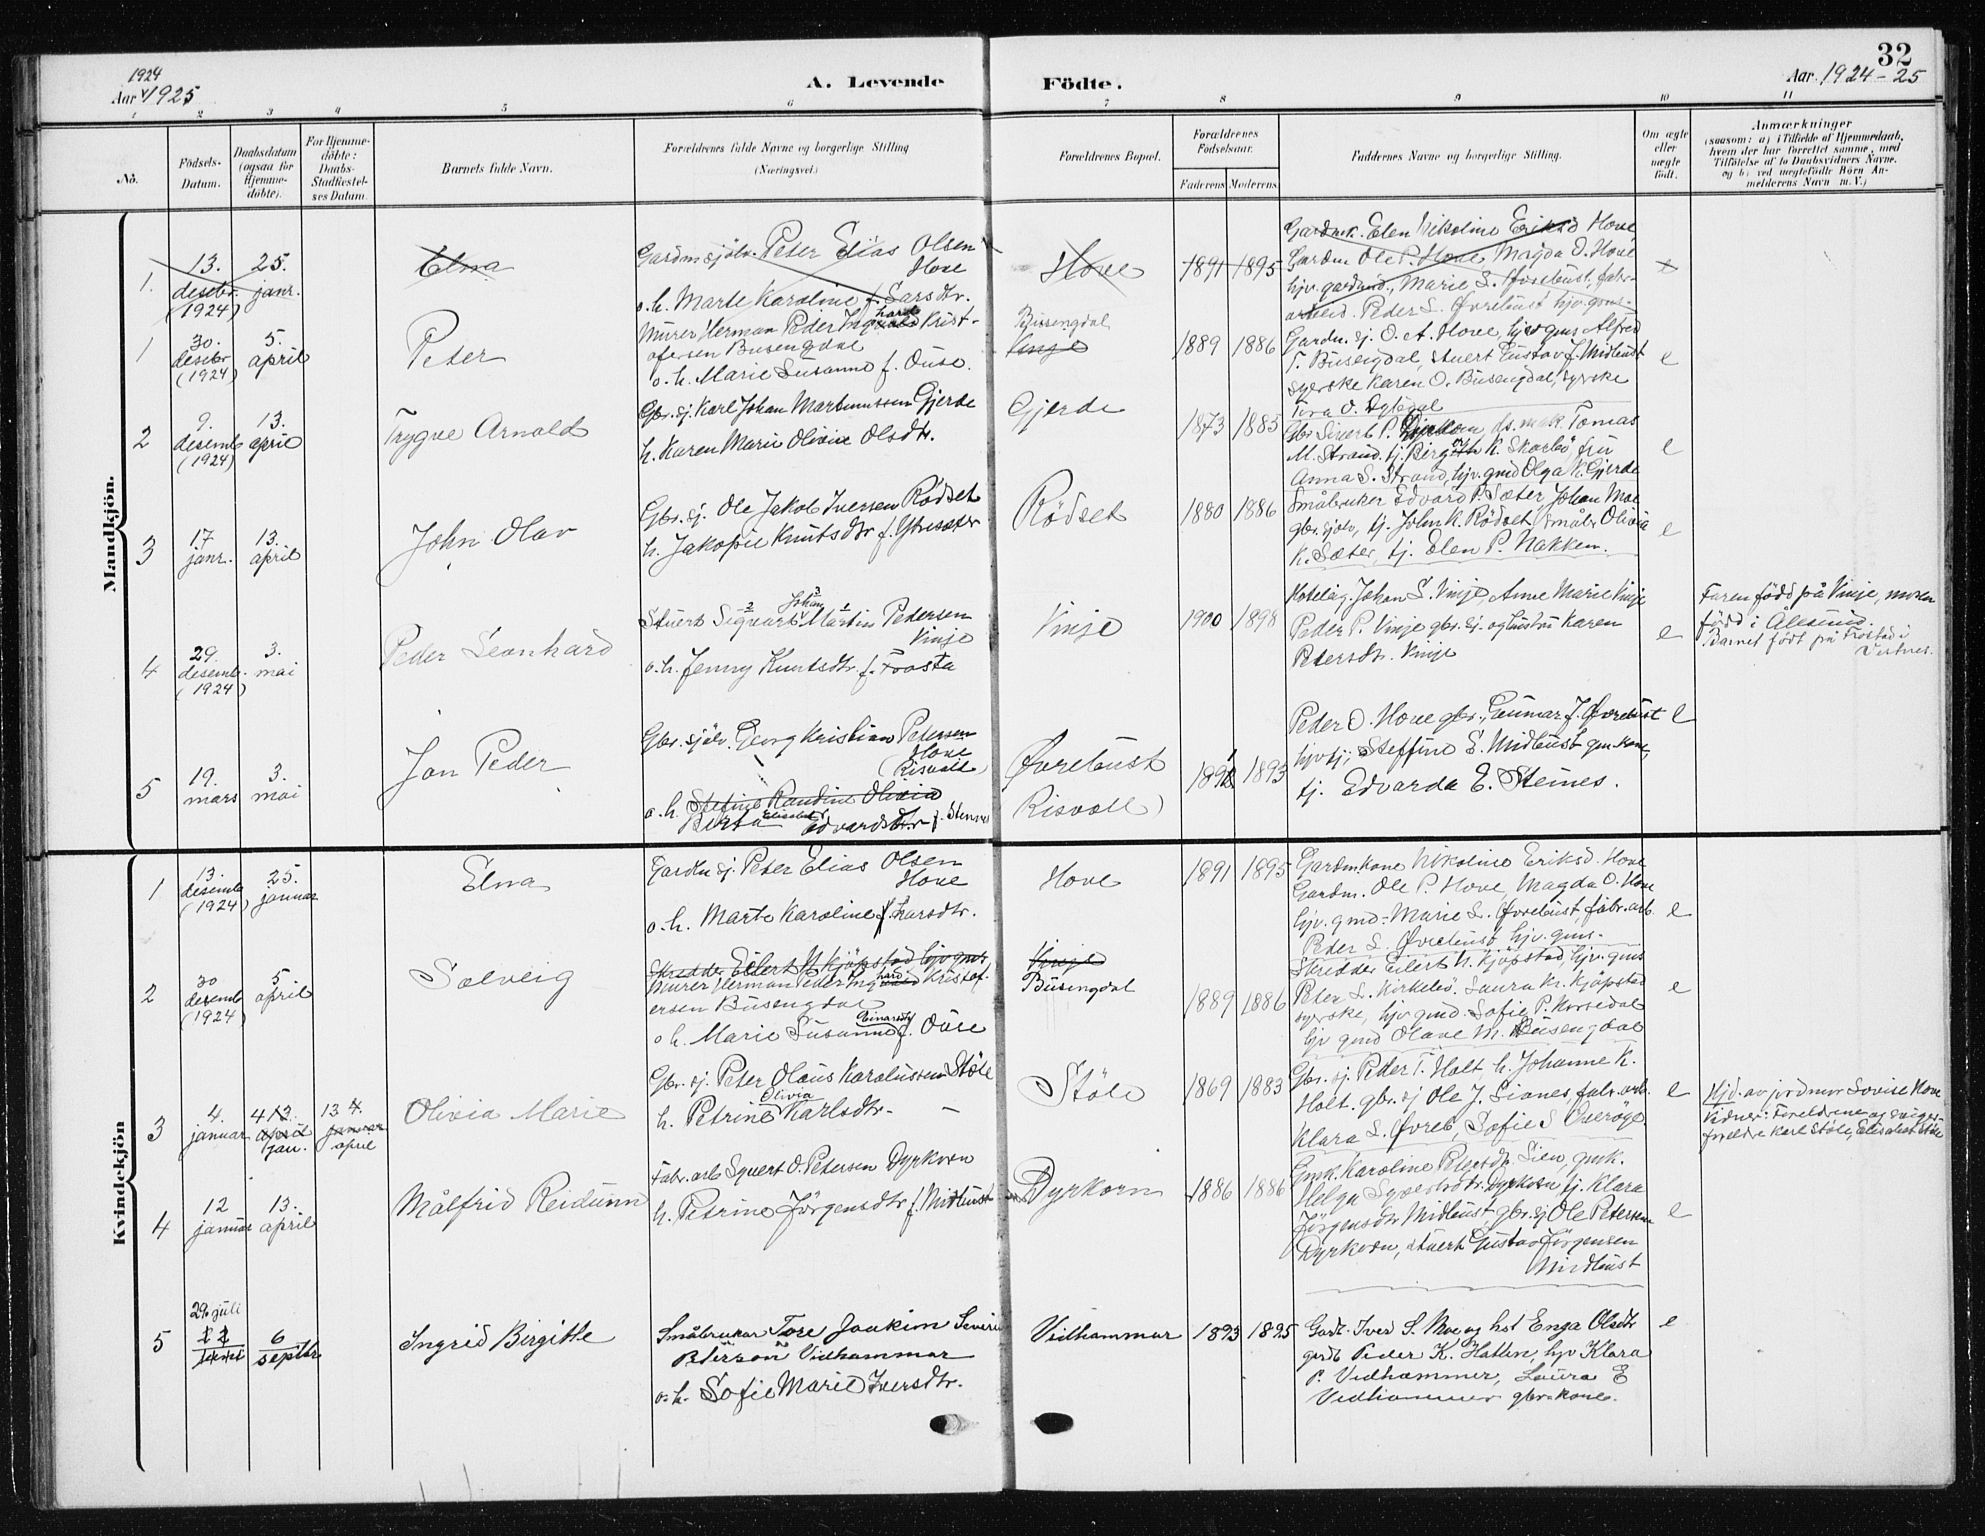 32
1924
Aar 1925
A. Levende
Födte.
Aar 1924-25
1 2 3 4 5 6 7 8 9 10 11
No.
Födsels-
Datum.
Daabsdatum
(ogsaa for
Hjemme-
döbte).
For Hjemme-
döbte:
Daabs-
Stadfæstel-
ses Datum.
Barnets fulde Navn.
Forældrenes fulde Navne og borgerlige Stilling
(Næringsvei.)
Forældrenes Bopæl.
Forældrenes
Födselsaar.
Faderens Moderens
Faddernes Navne og borgerlige Stilling.
Om ægte
eller
uægte
födt.
Anmærkninger
(saasom: a) i Tilfælde af Hjemmedaab,
hvem der har forrettet samme, med
Tilföielse af to Daabsvidners Navne.
og b) ved uægtefödte Börn An-
melderens Navn m. V.)
Mandkjön.
1. 13. desebr. (1924) 25. janr.
Elna
Gardm sjölv. Peter Elias Olsen
Hove
o. h. Marte Karoline f. Larsdtr.
Hove
1891 1895
Gardmk. Elen Nikoline Eriksd Hove
Gardm Ole P. Hove Magda O. Hove
hjv. gardmd., Marie L. Øvrebust, fabr-
arbeid. Peder L. Øvrebust hjv. gms-
e
1 30. desebr (1924) 5. april
Peter
Murer Herman Peder Ingvald hard Krist-
ofersen Busengdal
o. h. Marie Susanne f. Ouse.
Busengdal
Vinje
1889 1886
Gardm. sj. O. A. Hove, hjv gms Alfred
T. Busengdal, stuert Gustav J. Midtbust
syerske Karen O. Busengdal, syrske
e
2 9. desemb (1924) 13. april
Trygve Arnold
Gbr. sj. Karl Johan Martinussen Gjerde
h. Karen Marie Olivie Olsdtr.
Gjerde
1873 1885
Gbr Sivert P. Dyrkorn, ds. mak. Tomas
M. Strand, tj. K. Skorbö, fru
Anna S. Strand, hjv. gmd Olga K. Gjerde
e
3 17 janr. 13. april
John Olav
Gbr. sj. Ole Jakob Iversen Rödset
h. Jakopie Knutsdtr f. Ytresæter
Rödset
1880 1886
Småbruker Edvard P. Sæter Johan Moe
gbr. sjölv, tj. John K. Rödset, småbr Olivia
K. Sæter, tj. Elen P. Nakken.
e
4 29. desemb. (1924) 3. mai
Peder Leonhard
Johan
Stuert Sigvart Martin Pedersen
Vinje
o. h. Jenny Knutsdtr. f. Frosta
Vinje
1900 1898
Hotelåg. Johan S. Vinje, Anne Marie Vinje
Peder P. Vinje gbr. sj. og hustru Karen
Petersdtr. Vinje
e
Faren född på Vinje, moren
född i Ålesund.
Barnet född på Frostad i
Vestnes.
5 19. mars 3. mai
Jan Peder
Gbr. sjölv. Georg Kristian Petersen
Hove
(Risvold)
o. h. Stefine Randine Olivia
Berta Elisabet Edvardsdtr f. Stenes
Øvrebust
Risvoll)
1891 1893
Peder O. Hove gbr., Gunnar J. Øvrebust
hjv tj., Steffine S. Midtbust gm. kone,
tj. Edvarda E. Steines.
e
Kvindekjön
1 13. desemb (1924) 25. januar
Elna
Gardm sj. Peter Elias Olsen
Hove
o. h. Marte Karoline f. Larsdtr.
Hove
1891 1895
Gardmkone Nikoline Eriksd. Hove
Gardm. Ole P. Hove, Magda O. Hove
hjv. gmd- Marie L. Øvrebust, fabr. arb.
Peder L. Øvrebust, hjv. gms-
e
2 30 desemb (1924) 5 april
Solveig
Skredder Eilert N. Kjöpstad hjv gms
Murer Herman Peder Ingvald hard Kristof-
ersen Busengdal
o h. Marie Susanne Einarsdtr f. Ouse
Vinje
Busengdal
1889 1886
Skredder Eilert N. Kjöpstad, hjv. gms
Peter L. Kirkebö. Laura Kr. Kjöpstad
syerske, hjv gmd. Sofie P. Korsedal
hjv gmd Olave M. Busengdal
e
3 4. januar 4 13. april jan. 13 4. januar april
Olivia Marie
Gbr. sj. Peter Olaus Karolussen Stöle
h. Petrine Olivia Karlsdtr. -
Stöle
1869 1883
Gbr. sj. Peder T. Holt h. Johanne K.
Holt. gbr. sj Ole J. Sianes, fabr. arb.
Klara L. Øvreb, Sofie S Overöye.
e
Hjd. av jordmor Lovise Hove
Vidner: Foreldrene og sviger-
foreldre Karl Stöle, Elisabet Stöle
4 12 januar 13. april
Målfrid Reidunn
Fabr. arb Syvert O. Petersen Dyrkorn
h. Petrine Jörgensdtr f. Midtbust
Dyrkorn
1886 1886
Gmk. Karoline Petersdtr. Sien, gmk.
Helga Syvertsdtr. Dyrkorn tj. Klara
Jörgensdtr Midtbust, gbr. sj Ole Petersen
Dyrkorn, stuert Gustav Jörgensen
Midtbust
e
5 29. juli 6 septbr
Ingrid Birgitte
Småbrukar Tore Joakim Severin
Peterson Vidhammar
o. h. Sofie Marie Iversdtr.
Vidhammar
1893 1895
Gardb. Iver S. Moe og hst Enga Olsdtr
gardb Peder K. Hatlen, hjv Klara
P. Vidhammer, Laura E
Vidhammer gbr. kone.
e